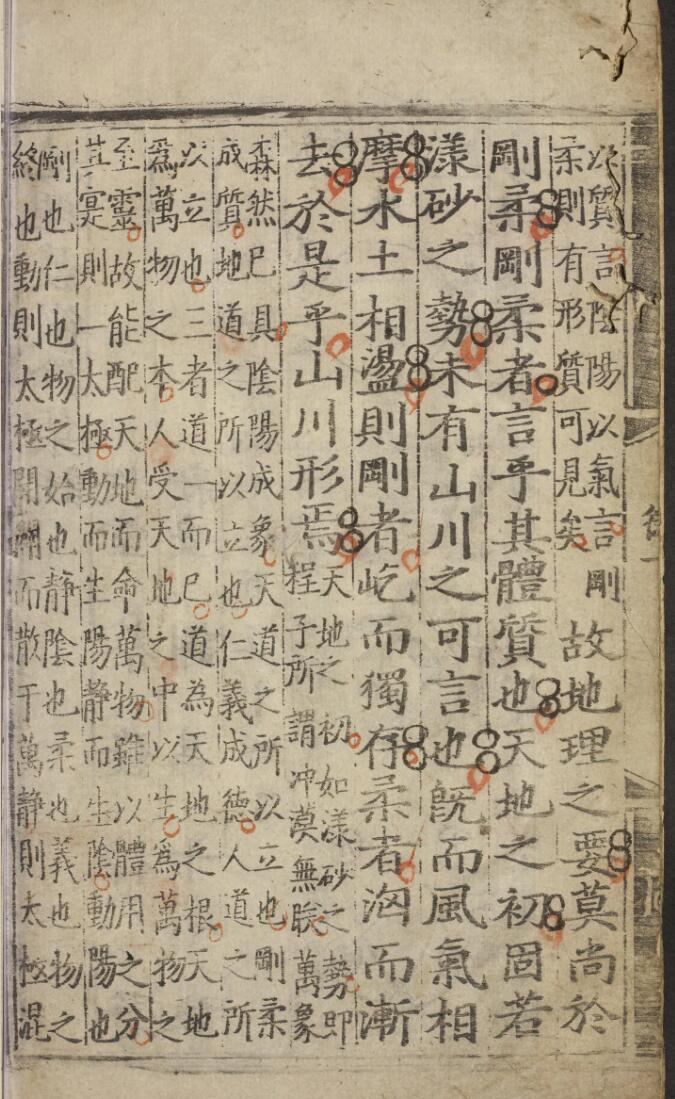 以質言陰陽以氣言剛
柔則有形質可見矣
故地理之要莫尚於
剛柔剛柔者言乎其體質也天地之初固若
漾砂之勢未有山川之可言也既而風氣相
摩水土相盪則剛者屹而獨存柔者洶而漸
去於是乎山川形焉
天地之初如漾砂之勢即
程子所謂冲漠無朕萬象
森然已具陰陽成象天道之所以立也剛柔
成質地道之所以立也仁義成德人道之所
以立也三者道一而已道為天地之根天地
為萬物之本人受天地之中以生為萬物之
至靈故能配天地而命萬物雖以體用之分
其寔則一太極動而生陽静而生陰動陽也
剛也仁也物之始也静陰也柔也義也物之
終也動則太極開闢而散于萬静則太極混